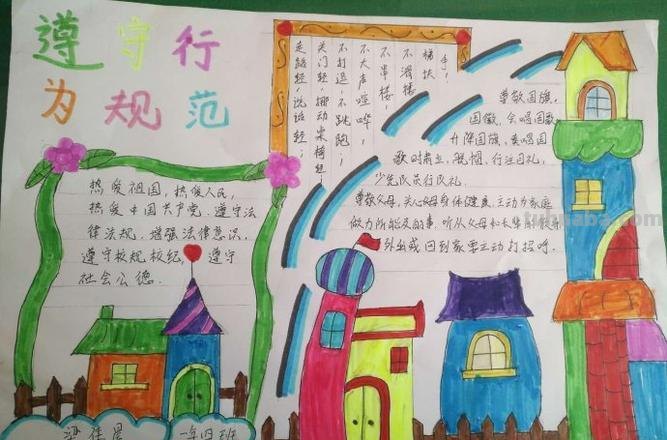 遵守行
为规范
热爱祖国，热爱人民，
热爱中国共产党．遵守法
律法规，增强法律意识．
遵守校规校纪，遵守
社会公德．
走路轻，说话轻；
关门轻，挪动桌椅轻；
不打逗，不跳跑；
不大声喧哗，
不串楼，
不滑楼
梯扶
手！
尊敬国旗，
国徽，会唱国歌，
升降国旗，奏唱国
歌时肃立，脱帽，行注目礼，
少先队员行队礼．
尊敬父母，关心父母身体健康，主动为家庭
做力所能及的事，听从父母和长辈的教导
外出或回到家要主动打招呼．
一年四班